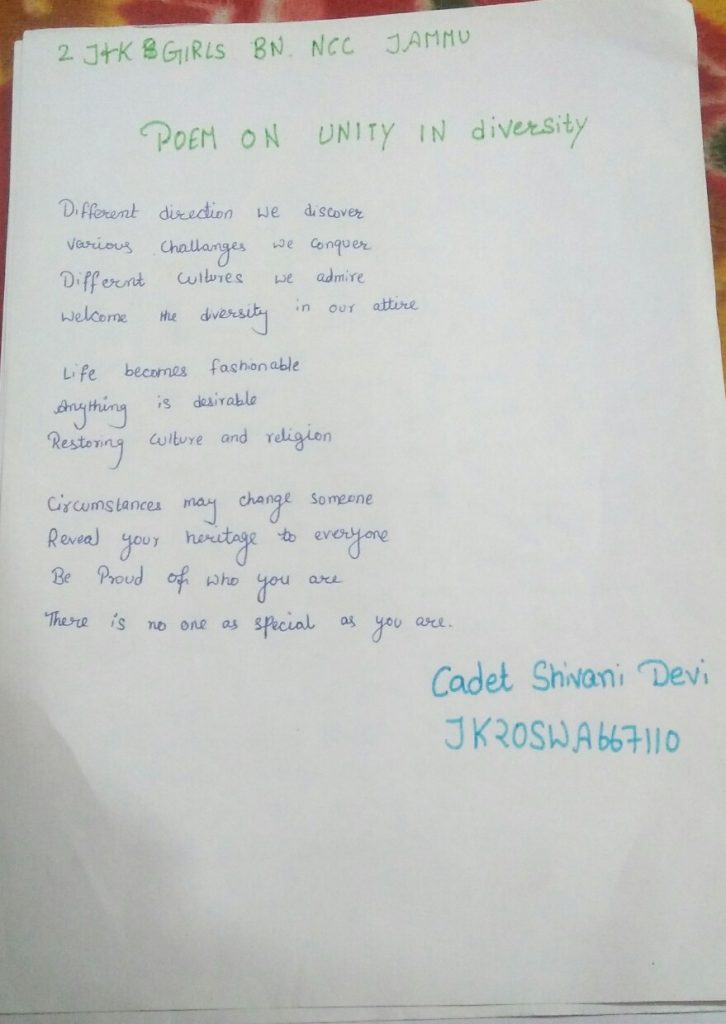 2 J+K GIRLS BN. NCC JAMMU
POEM ON UNITY IN diversity
Different direction we discover
various challanges we conquer
Differnt cultures we admire
Welcome the diversity in our attire
Life becomes fashionable
Anything is desirable
Restoring culture and religion
Circumstances may change someone
Reveal your heritage to everyone
Be Proud of who you are
There is no one as special as you are.
Cadet Shivani Devi
JK20SWA667110